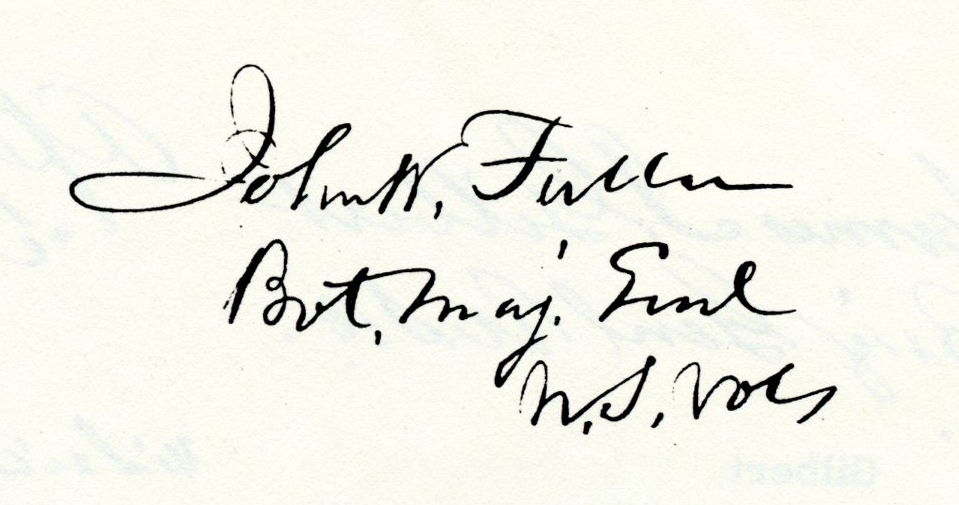 John W. Fuller
Bvt, Maj. Genl
U.S. Vols